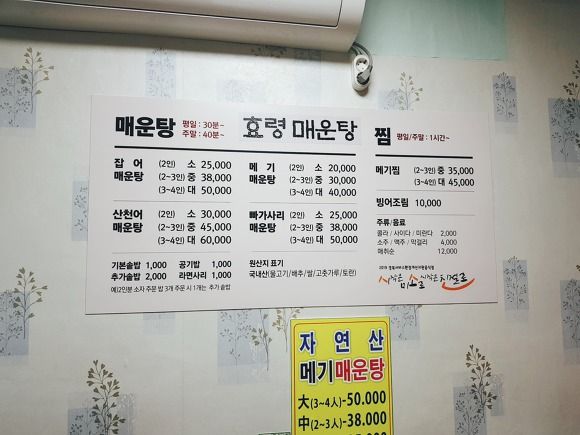 매운탕 평일 : 30분~
주말 : 40분~
효령 매운탕
찜 평일/주말 : 1시간~
잡어 매운탕
(2인) 소 25,000
(2~3인) 중 38,000
(3~4인) 대 50,000
메기 매운탕
(2인) 소 20,000
(2~3인) 중 30,000
(3~4인) 대 40,000
메기찜 (2~3인) 중 35,000
(3~4인) 대 45,000
산천어 매운탕
(2인) 소 30,000
(2~3인) 중 45,000
(3~4인) 대 60,000
빠가사리 매운탕
(2인) 소 25,000
(2~3인) 중 38,000
(3~4인) 대 50,000
빙어조림 10,000
주류/음료
콜라 / 사이다 / 미란다 2,000
소주 / 맥주 / 막걸리 4,000
매취순 12,000
기본솥밥 1,000 공기밥 1,000
추가솥밥 2,000 라면사리 1,000
예)2인분 소자 주문 밥 3개 주문 시 1개는 추가 솥밥
원산지 표기
국내산(물고기/배추/쌀/고춧가루/토란)
자연산
메기매운탕
大(3~4人)-50.000
中(2~3人)-38.000